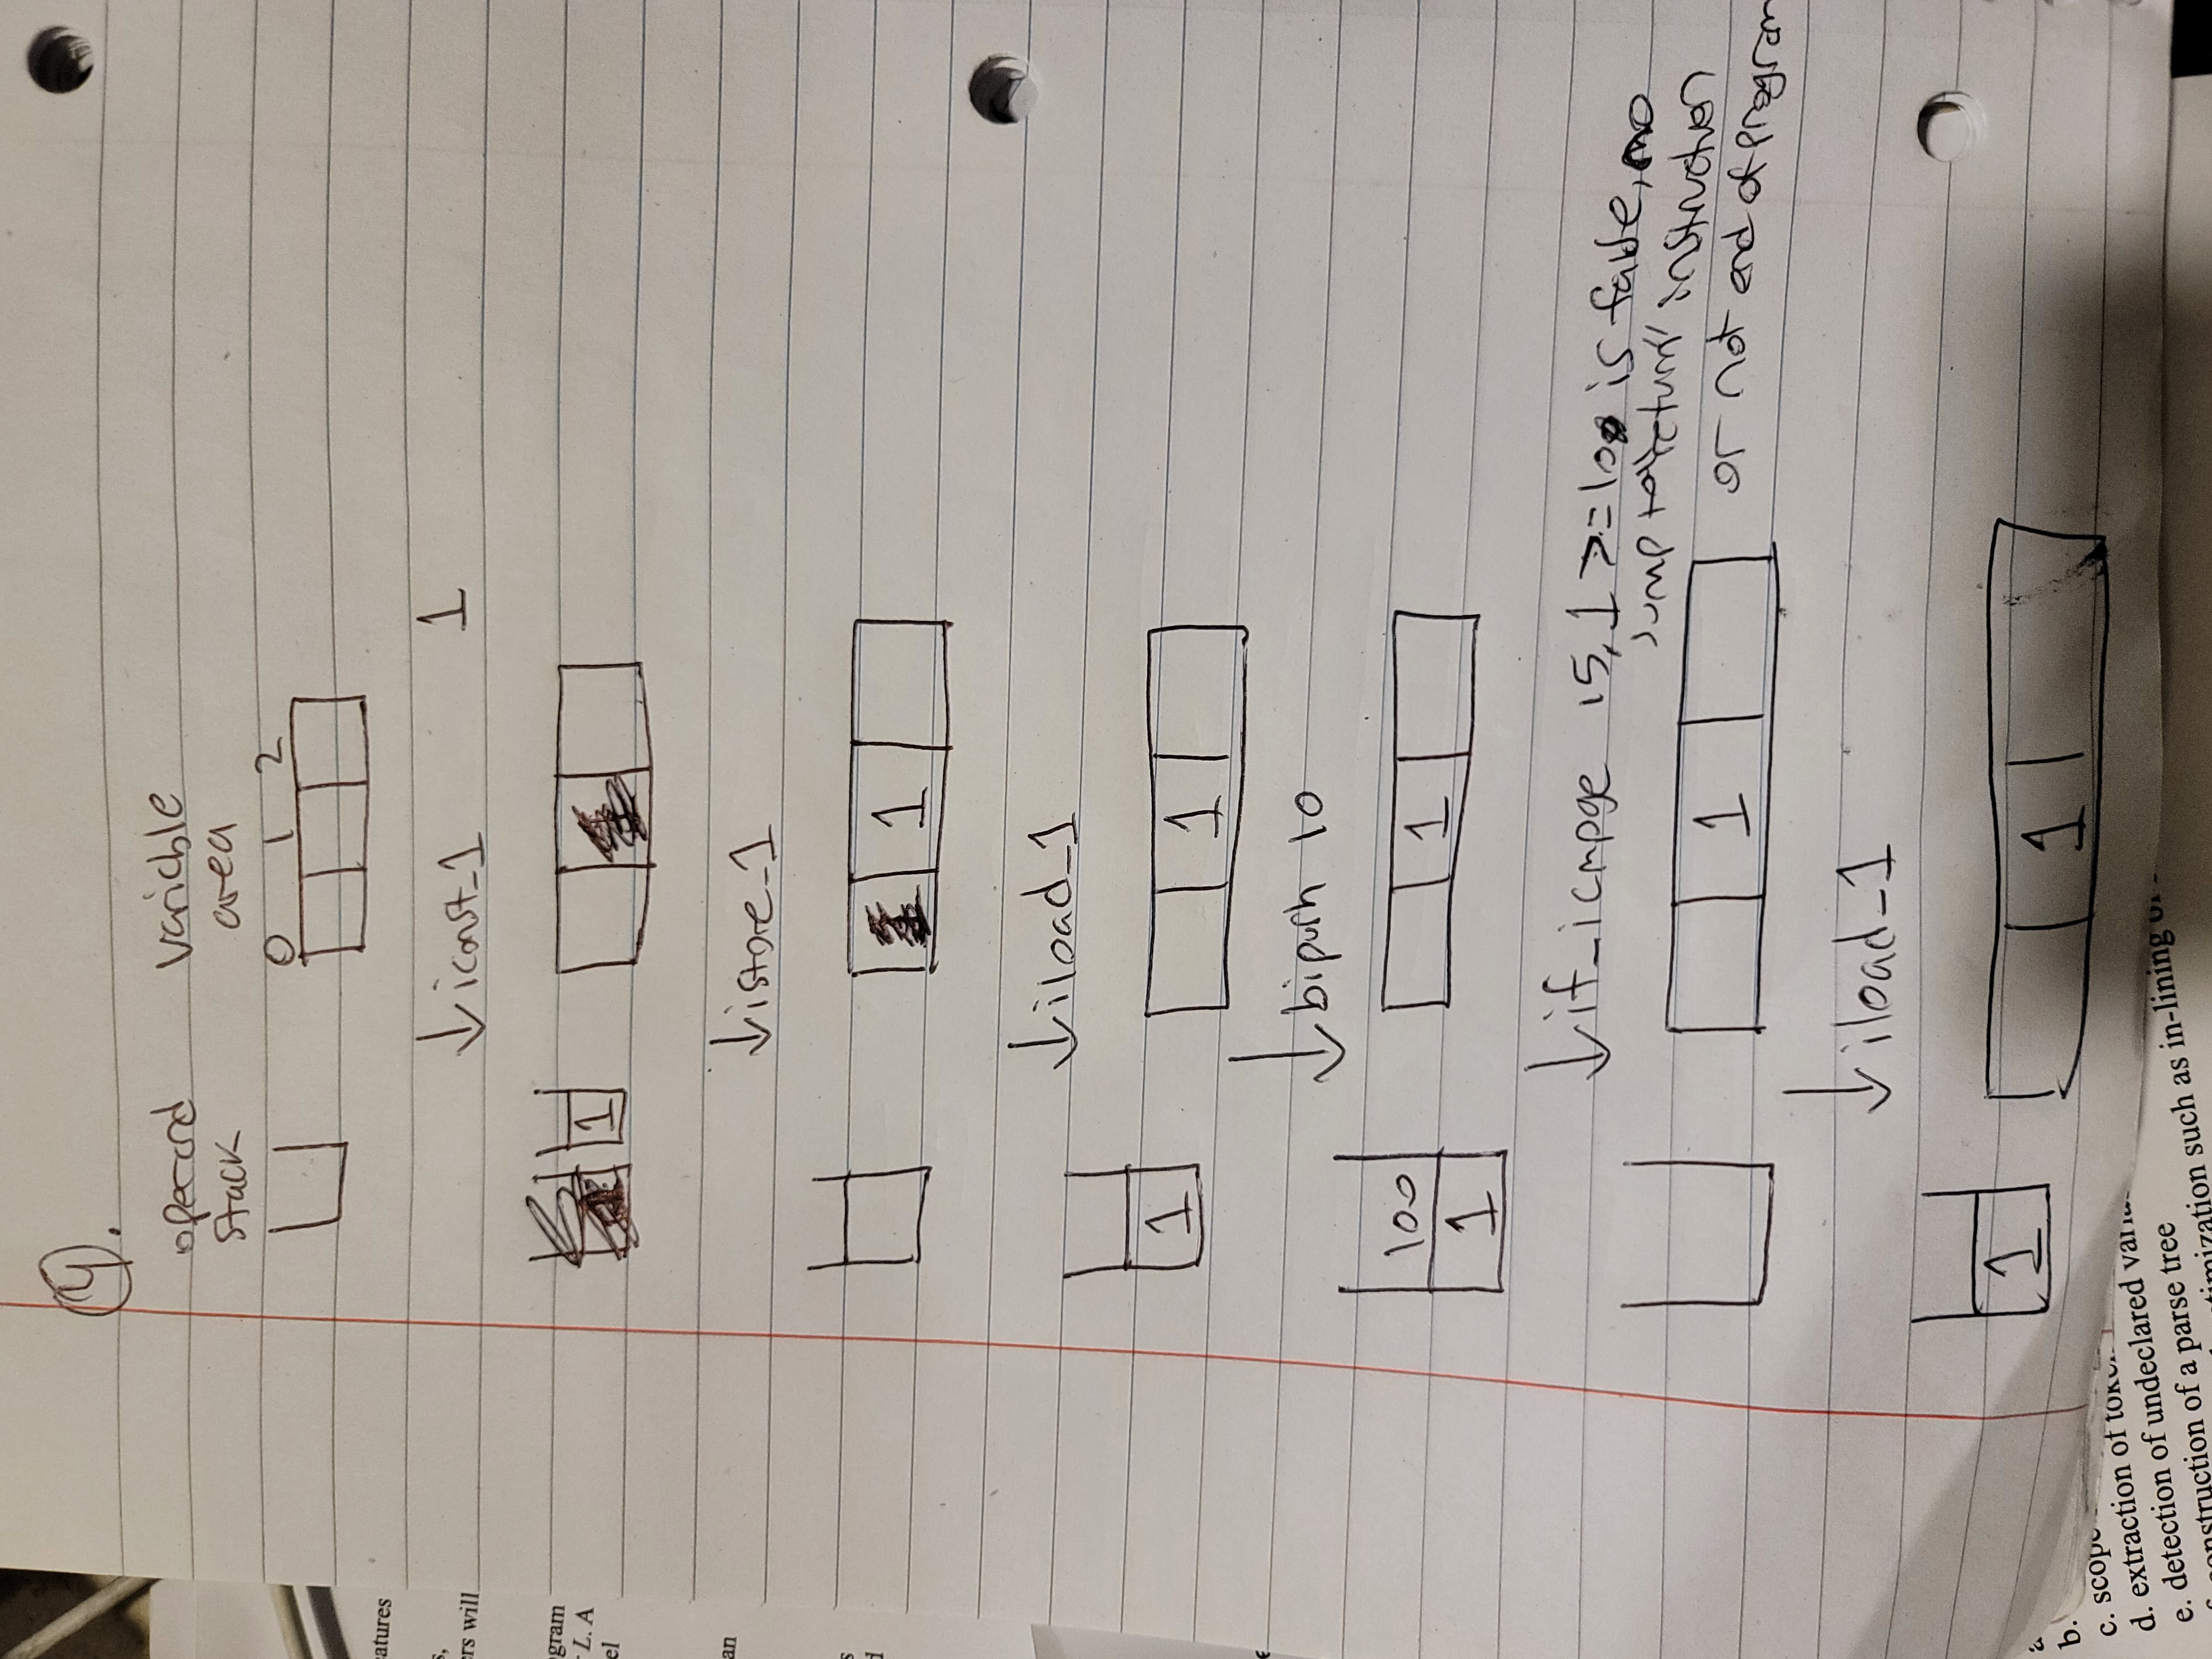 4.
operand variable
stack area
0 1 2
↓iconst_1 1
1
↓istore_1
1
↓iload_1
1 1
↓bipush 10
100
1 1
↓if_icmpge 15, 1 >= 100 is false, no
jump to "return" instruction
1 or not end of program
↓iload_1
1 1
eatures
s,
ers will
ogram
r L. A
el
an
s
d
e
a
b.
c. scope
d. extraction of
e. detection of undeclared
construction of a parse tree
such as in-lining